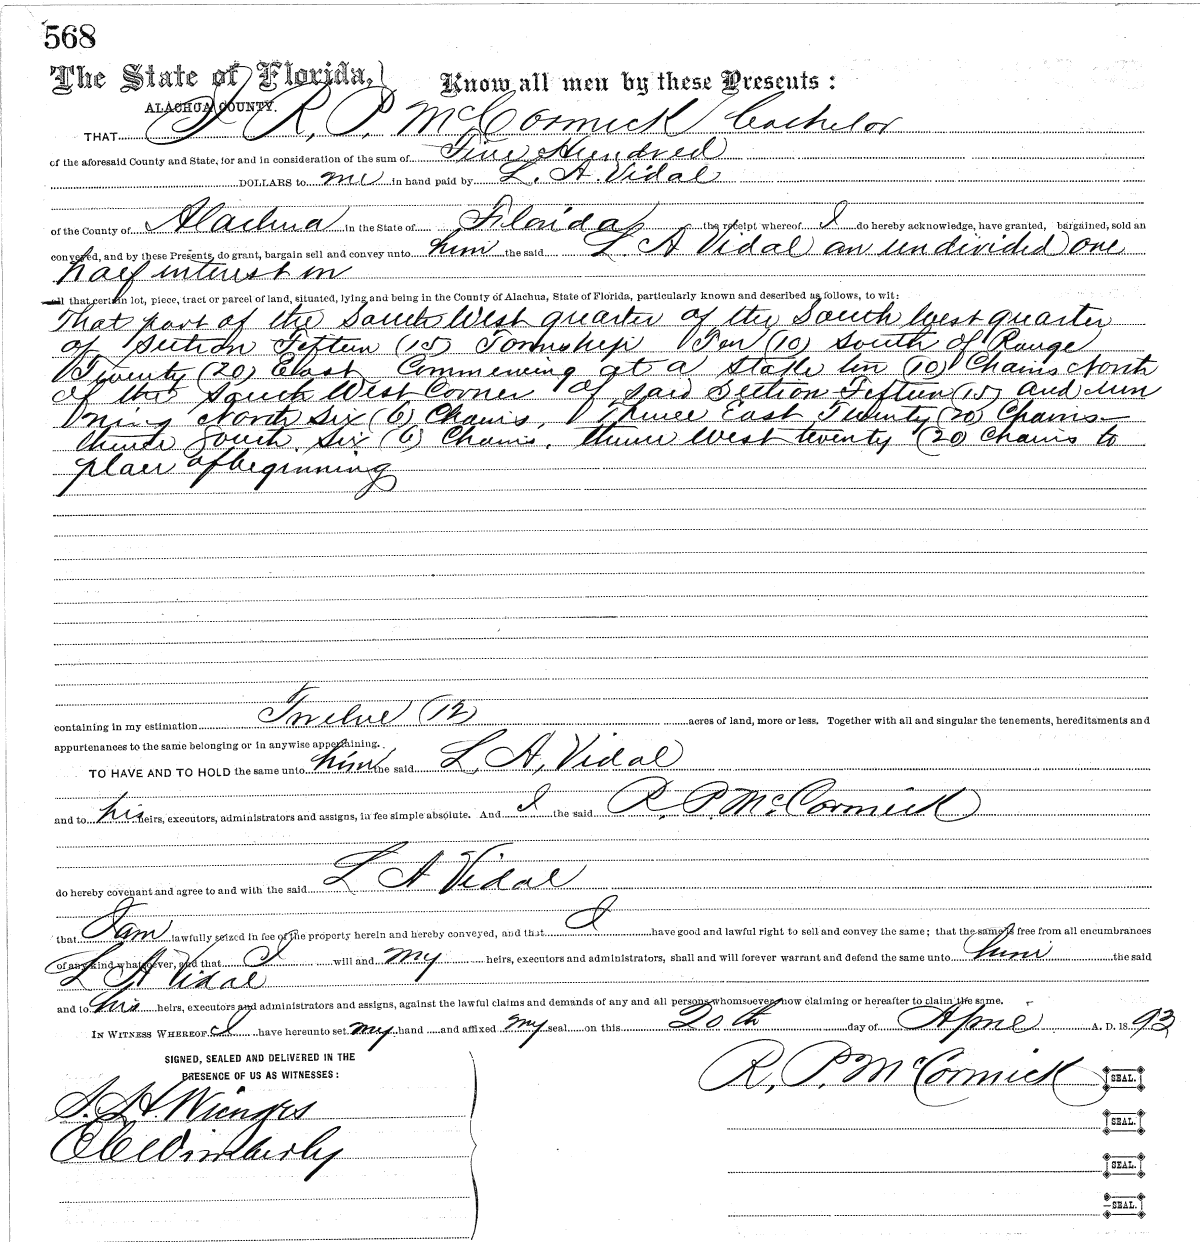 568
The State of Florida,
ALACHUA COUNTY.
Know all men by these Presents:
THAT I R. P. McCormick bachelor
of the aforesaid County and State, for and in consideration of the sum of Five Hundred
DOLLARS to me in hand paid by L. A. Vidal
of the County of Alachua in the State of Florida the receipt whereof I do hereby acknowledge, have granted, bargained, sold an
conveyed, and by these Presents, do grant, bargain sell and convey unto him the said L. A Vidal an undivided one
half interest in
all that certain lot, piece, tract or parcel of land, situated, lying and being in the County of Alachua, State of Florida, particularly known and described as follows, to wit:
That part of the South West quarter of the South West quarter
of Section Fifteen (15) Township Ten (10) South of Range
Twenty (20) East Commencing at a Stake ten (10) Chains North
of the South West Corner of said Section Fifteen (15) and run
ning North Six (6) Chains, Thence East Twenty (20) Chains
thence South Six (6) Chains, thence West twenty (20 Chains to
place of beginning
containing in my estimation Twelve (12) acres of land, more or less. Together with all and singular the tenements, hereditaments and
appurtenances to the same belonging or in anywise appertaining.
TO HAVE AND TO HOLD the same unto him the said L. A, Vidal
and to his heirs, executors, administrators and assigns, in fee simple absolute. And I the said R. P. McCormick
do hereby covenant and agree to and with the said L A Vidal
that I am lawfully seized in fee of the property herein and hereby conveyed, and that I have good and lawful right to sell and convey the same; that the same is free from all encumbrances
of any kind whatsoever, and that I will and my heirs, executors and administrators, shall and will forever warrant and defend the same unto him the said
L A Vidal
and to his heirs, executors and administrators and assigns, against the lawful claims and demands of any and all persons whomsoever now claiming or hereafter to claim the same.
IN WITNESS WHEREOF I have hereunto set my hand and affixed my seal on this 20th day of April A. D. 1893
SIGNED, SEALED AND DELIVERED IN THE
PRESENCE OF US AS WITNESSES:
R, P. McCormick SEAL.
S. H. Wienges
SEAL.
Wimberly
SEAL.
SEAL.